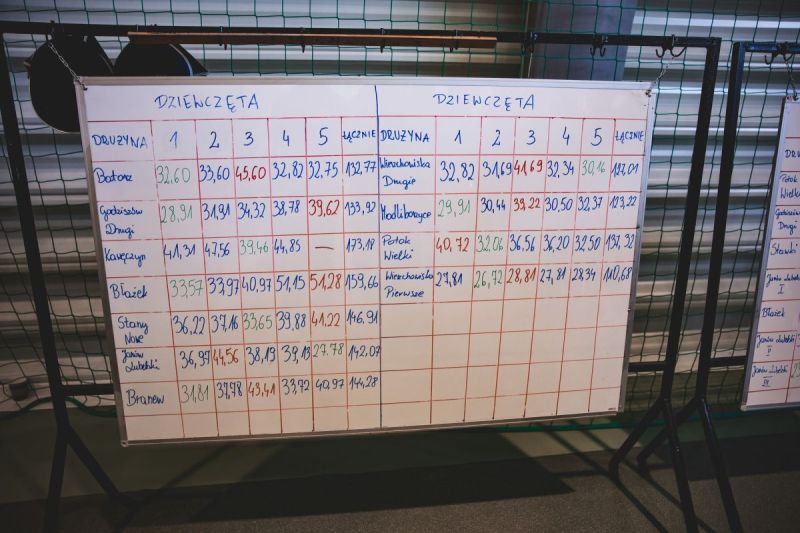 DZIEWCZĘTA
DRUŻYNA 1 2 3 4 5 ŁĄCZNIE
Batorz 32,60 33,60 45,60 32,82 32,75 132,77
Godziszów Drugi 28,91 31,91 34,32 38,78 39,62 133,92
Kawęczyn 41,31 47,56 39,46 44,85 — 173,18
Błażek 33,57 33,97 40,97 51,15 51,28 159,66
Stany Nowe 36,22 37,16 33,65 39,88 41,22 146,91
Janów Lubelski 36,97 44,56 38,19 39,13 27,78 142,07
Branew 31,81 37,78 43,41 33,72 40,97 144,28
DZIEWCZĘTA
DRUŻYNA 1 2 3 4 5 ŁĄCZNIE
Wierzchowiska Drugie 32,82 31,69 41,69 32,34 30,16 127,01
Modliborzyce 29,91 30,44 39,22 30,50 32,37 123,22
Potok Wielki 40,72 32,06 36,56 36,20 32,50 137,32
Wierzchowiska Pierwsze 27,81 26,72 28,81 27,81 28,34 110,68
Potok
Godziszów
Drugi
Janów
I
Błażek
Janów
II
Janów
III